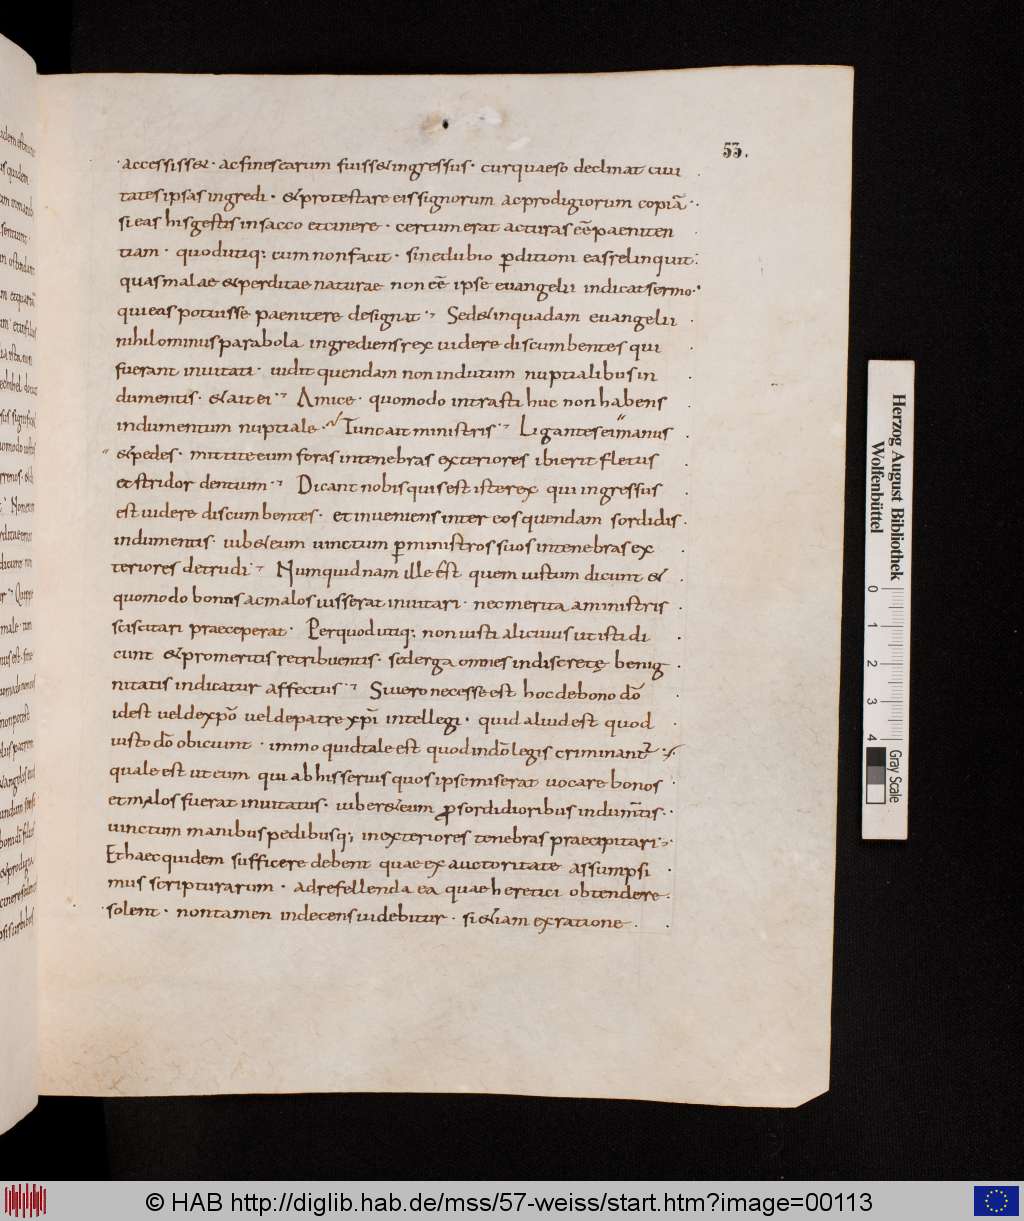 53.
accessiss& · ac fines earum fuiss& ingressus · cur quaeso declinat ciui
tates ipsas ingredi · & protestare eis signorum ac prodigiorum copiā ·
si eas his gestis in sacco et cinere · certum erat acturas eē paeniten
tiam · quod utiq; cum non facit · sine dubio p̱ditioni eas relinquit :
quas malae & perditae naturae non eē ipse euangelii indicat sermo ·
qui eas potuisse paenitere designat · Sed & in quadam euangelii
nihilominus parabola ingrediens rex uidere discumbentes qui
fuerant inuitati · uidit quendam non indutum nuptialibus in
dumentis · & ait ei · Amice · quomodo intrasti huc non habens
indumentum nuptiale · Tunc ait ministris · Ligantes ei manus
& pedes · mittite eum foras in tenebras exteriores ibi erit fletus
et stridor dentum · Dicant nobis quis est iste rex qui ingressus
est uidere discumbentes · et inueniens inter eos quendam sordidis
indumentis · iub& eum uinctum p̱ ministros suos in tenebras ex
teriores detrudi · Numquidnam ille est quem iustum dicunt &
quomodo bonos ac malos iusserat inuitari · nec merita a ministris
sciscitari praeceperat · Per quod utiq; non iusti alicuius ut isti di
cunt & pro meritis retribuentis · sed erga omnes indiscretę benig
nitatis indicatur affectus · Si uero necesse est hoc de bono dō
id est uel de xp̄o uel de patre xp̄i intellegi · quid aliud est quod
iusto dō obiciunt · immo quid tale est quod in dō legis criminant
quale est ut eum qui ab his seruis quos ipse miserat uocare bonos
et malos fuerat inuitatus · iuber& eum p̱ sordidioribus indum̄tis ·
uinctum manibus pedibusq; in exteriores tenebras praecipitari ·
Et haec quidem sufficere debent quae ex auctoritate assumpsi
mus scripturarum · ad refellenda ea quae heretici obtendere
solent · non tamen indecens uidebitur · si &iam ex ratione ·
Herzog August Bibliothek
Wolfenbüttel
0 1 2 3 4
Gray Scale
© HAB http://diglib.hab.de/mss/57-weiss/start.htm?image=00113